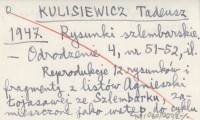 KULISIEWICZ Tadeusz
1947. Rysunki szlemborskie.
— Odrodzenie 4, nr 51-52, il.
Reprodukcje 12 rysunków i
fragmenty z listów Agnieszki
Łojasowej ze Szlembarku, za-
mieszczone jako wstęp do cyklu